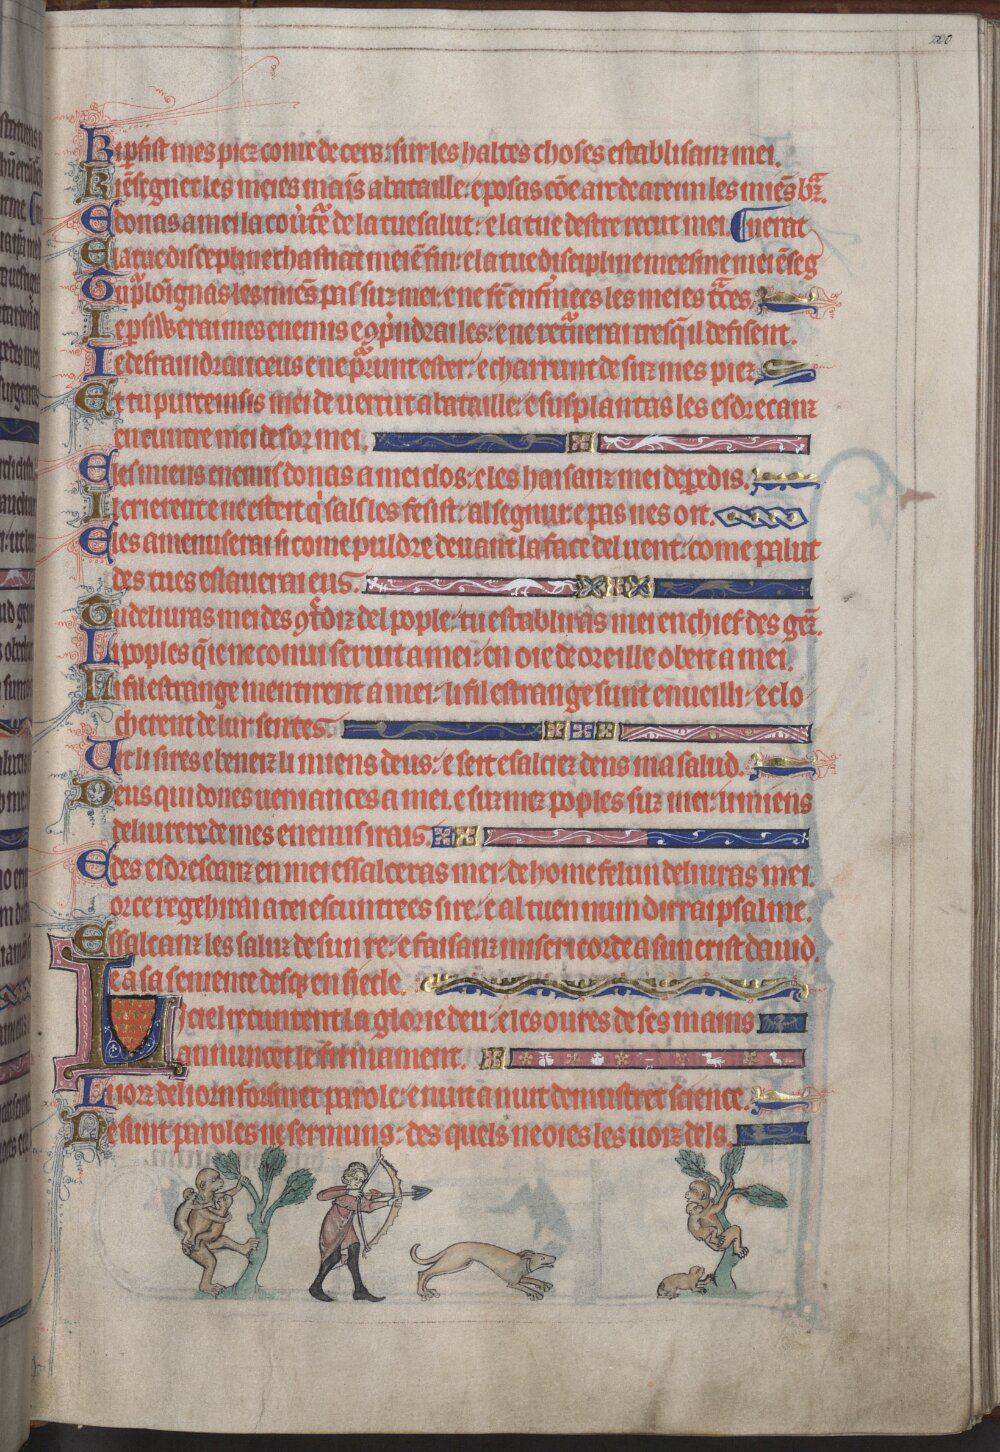 220
Ki pfist mes piez come de cers: sur les haltes choses establisanz mei.
Ki ēsegnet les meies mains a bataille: e posas cōe arc de areim les miens
E donas a mei la de la tue salut: e la tue destre recut mei.
E la tue discepline chastiat mei en fin: e la tue discipline meesme mei ēseg
nerat
les miēs pas suz mei: e ne sūt les meies
Ie mes enemis e les: e ne tresq̄ il defisent.
Ie defraindrai iceus e ne ester: e charrunt desuz mes piez
E tu purceinsis mei de vertut a bataille: e susplantas les esdrecanz
en cuntre mei desoz mei.
E les miens enemis donas a mei dos: e les haisanz mei de perdis.
Il crierent e ne esteit q̇ sals les fesist: al segnur: e pas nes oit.
E les amenuserai si come puldre devant la face del vent: come palut
des rues eslaverai eus.
Tu deliuras mei des del pople: tu establiras mei en chief des
Li poples q̄ ie ne conui seruit a mei: en oie de oreille obeit a mei.
Li fil estrange mentirent a mei: li fil estrange sunt enueilli: e clo
cherent de lur sentes.
Vit li sires e beneiz li miens deus: e seit esalciez deus ma salud.
Deus qui dones veniances a mei. e suzmez poples suz mei: li miens
deliurere de mes enemis irais.
E des esdrescanz en mei essalceras mei: de home felun deliuras mei.
orce regehirai a tei es cuntrees sire: e al tuen num dirrai psalme.
Essalcanz les saluz de sun rei: e faisanz misericorde a sun crist david.
e a sa semence desq̄ en siecle.
Li ciel recuntent la glorie deu: e les oures de ses mains
annuncet le firmament.
Li iorz del iorn forsmet parole: e nuit a nuit demustret science.
Ne sunt paroles ne sermuns: des quels ne oies les voiz dels.